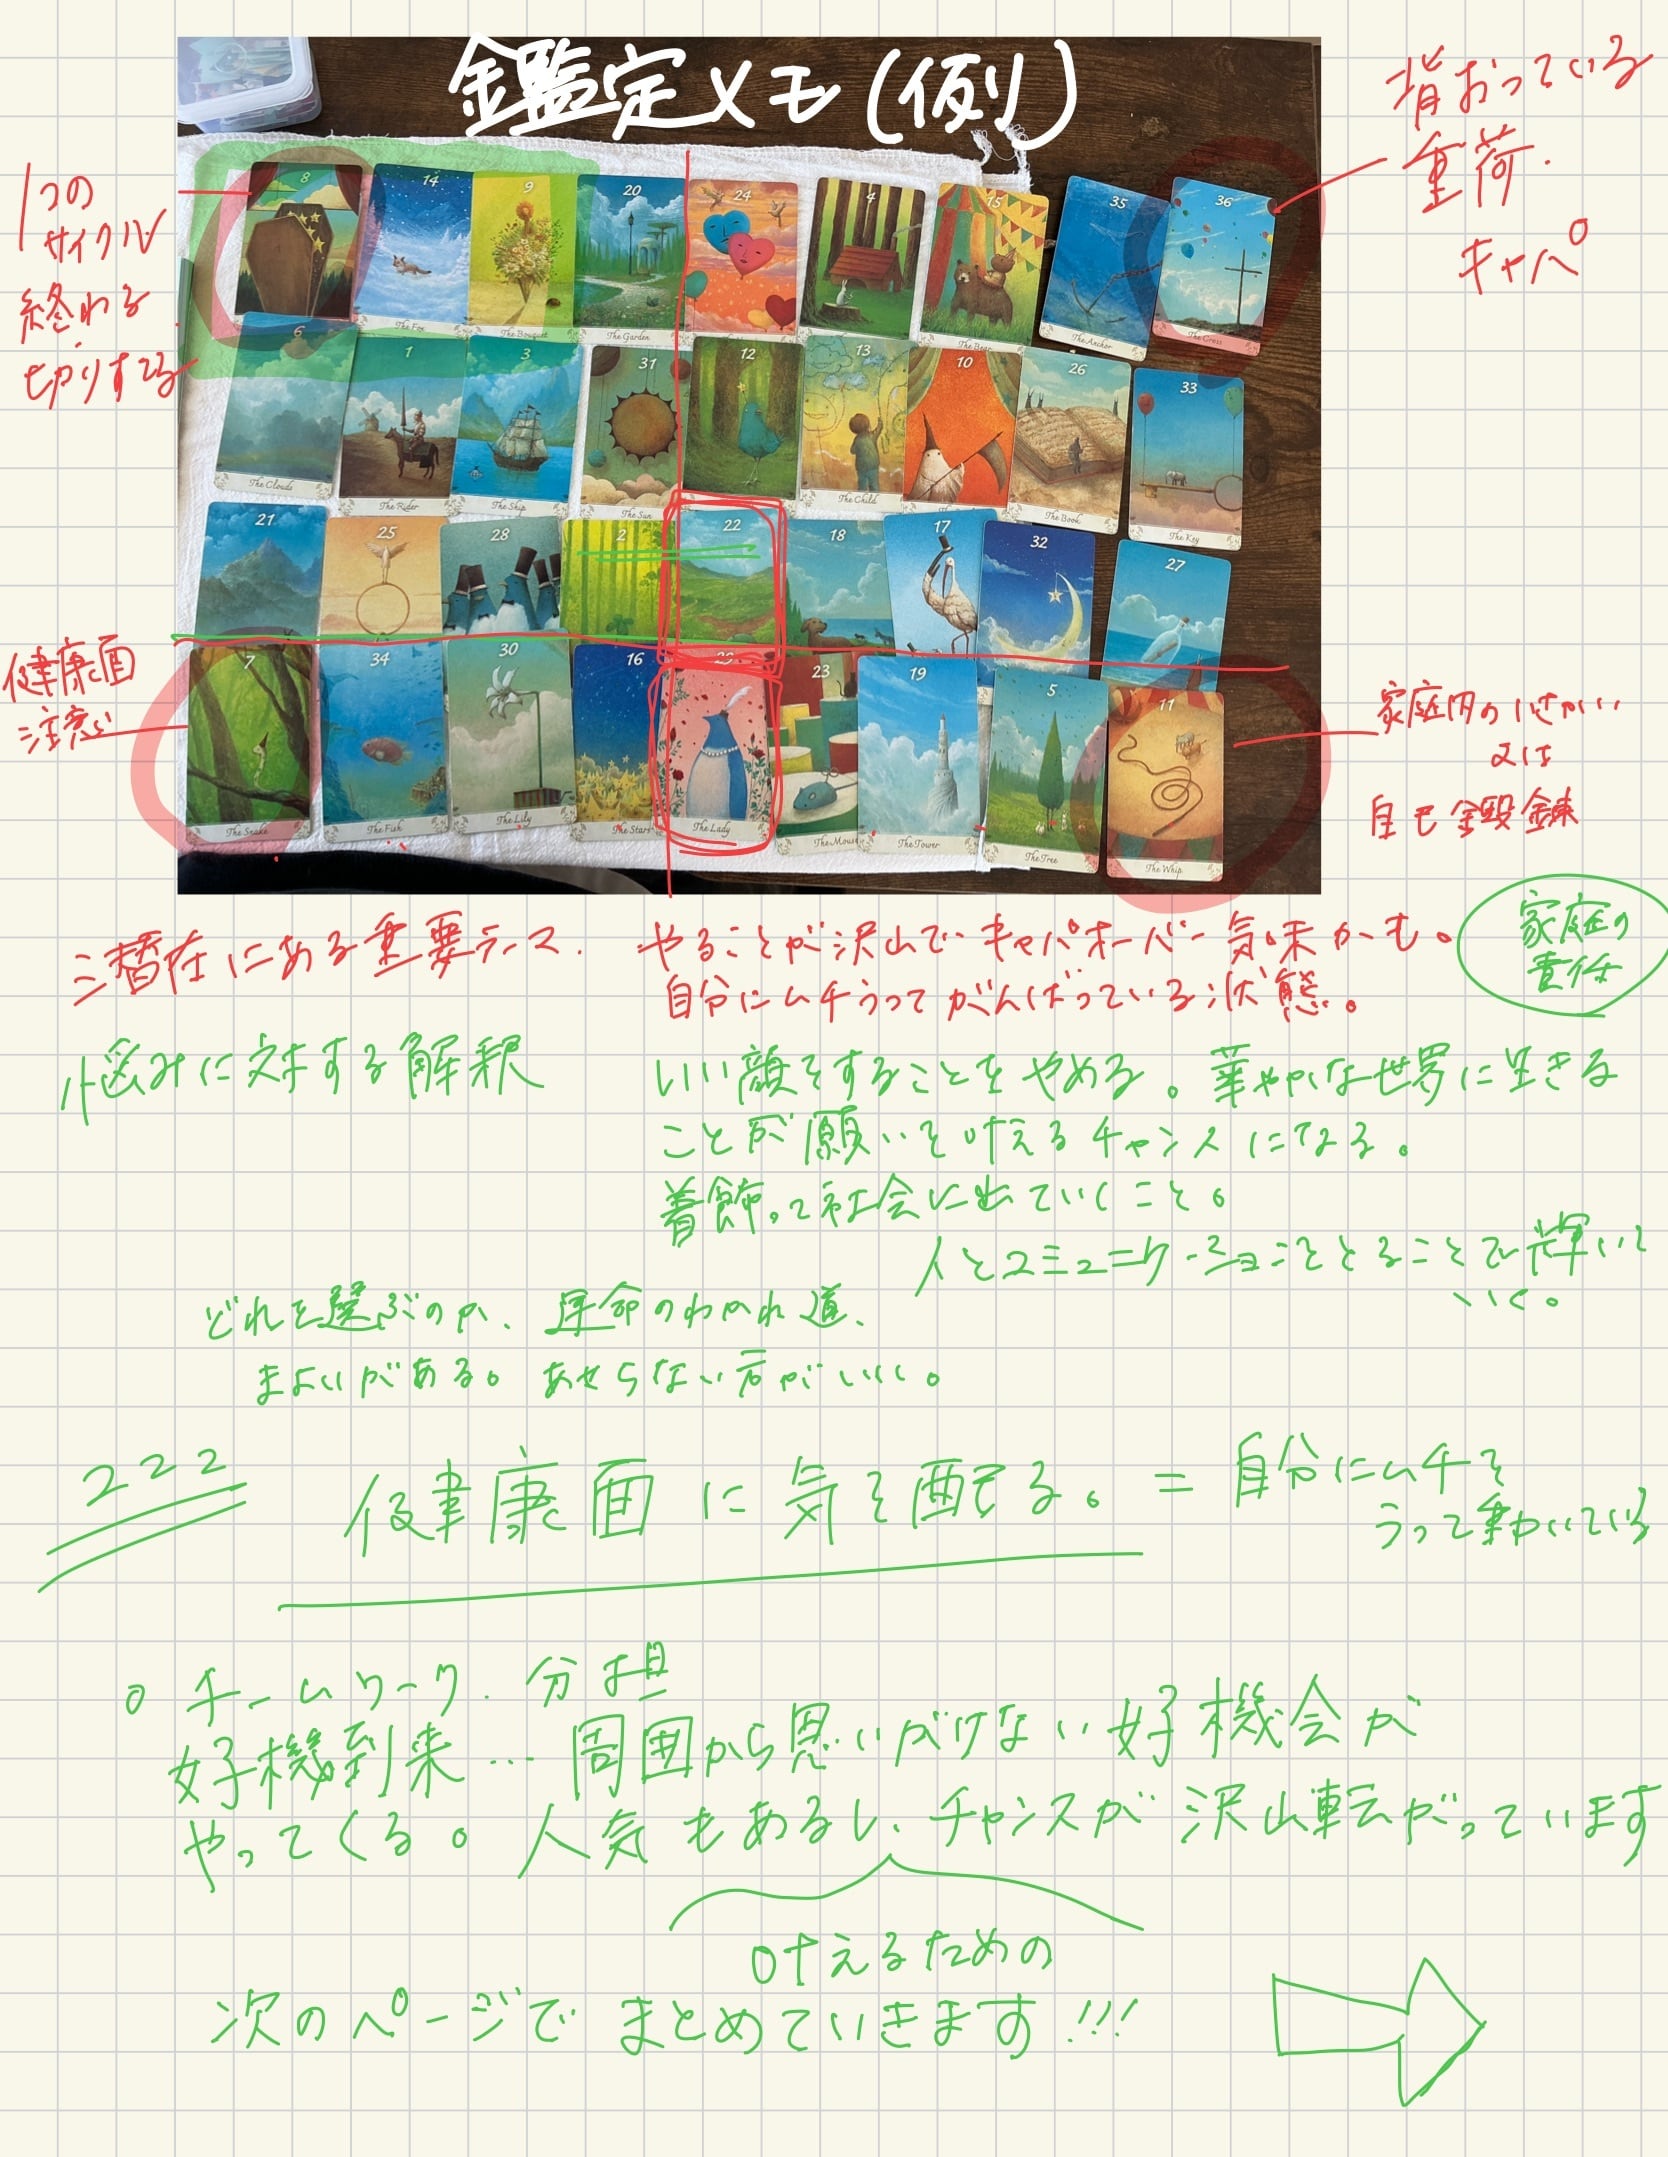 鑑定メモ(例)
1つの
サイクル
終わる
切りすてる
背おっている
重荷.
キャパ
8
14
The Fox
9
The Bouquet
20
The Garden
24
4
15
The Bear
35
The Anchor
36
The Cross
6
The Clouds
1
The Rider
3
The Ship
31
The Sun
12
13
The Child
10
26
The Book
33
The Key
21
25
28
2
22
18
17
32
27
健康面
注意
7
The Snake
34
The Fish
30
The Lily
16
The Stars
29
The Lady
23
The Mouse
19
The Tower
5
The Tree
11
The Whip
家庭内の
又は
自己鍛錬
潜在にある重要テーマ.
やることが沢山でキャパオーバー気味かも。
自分にムチうってがんばっている状態。
家庭の
責任
悩みに対する解釈
いい顔をすることをやめる。華やかな世界に生きる
ことが願いを叶えるチャンスになる。
着飾って社会に出ていくこと。
人とコミュニケーションをとることで輝いて
いく。
どれを選ぶのか、運命のわかれ道、
まよいがある。あせらない方がいい。
222
健康面に気を配る。=自分にムチを
うって動いている
○ チームワーク.分担
好機到来…周囲から思いがけない好機会が
やってくる。人気もあるし、チャンスが沢山転がっています
叶えるための
次のページでまとめていきます!!!